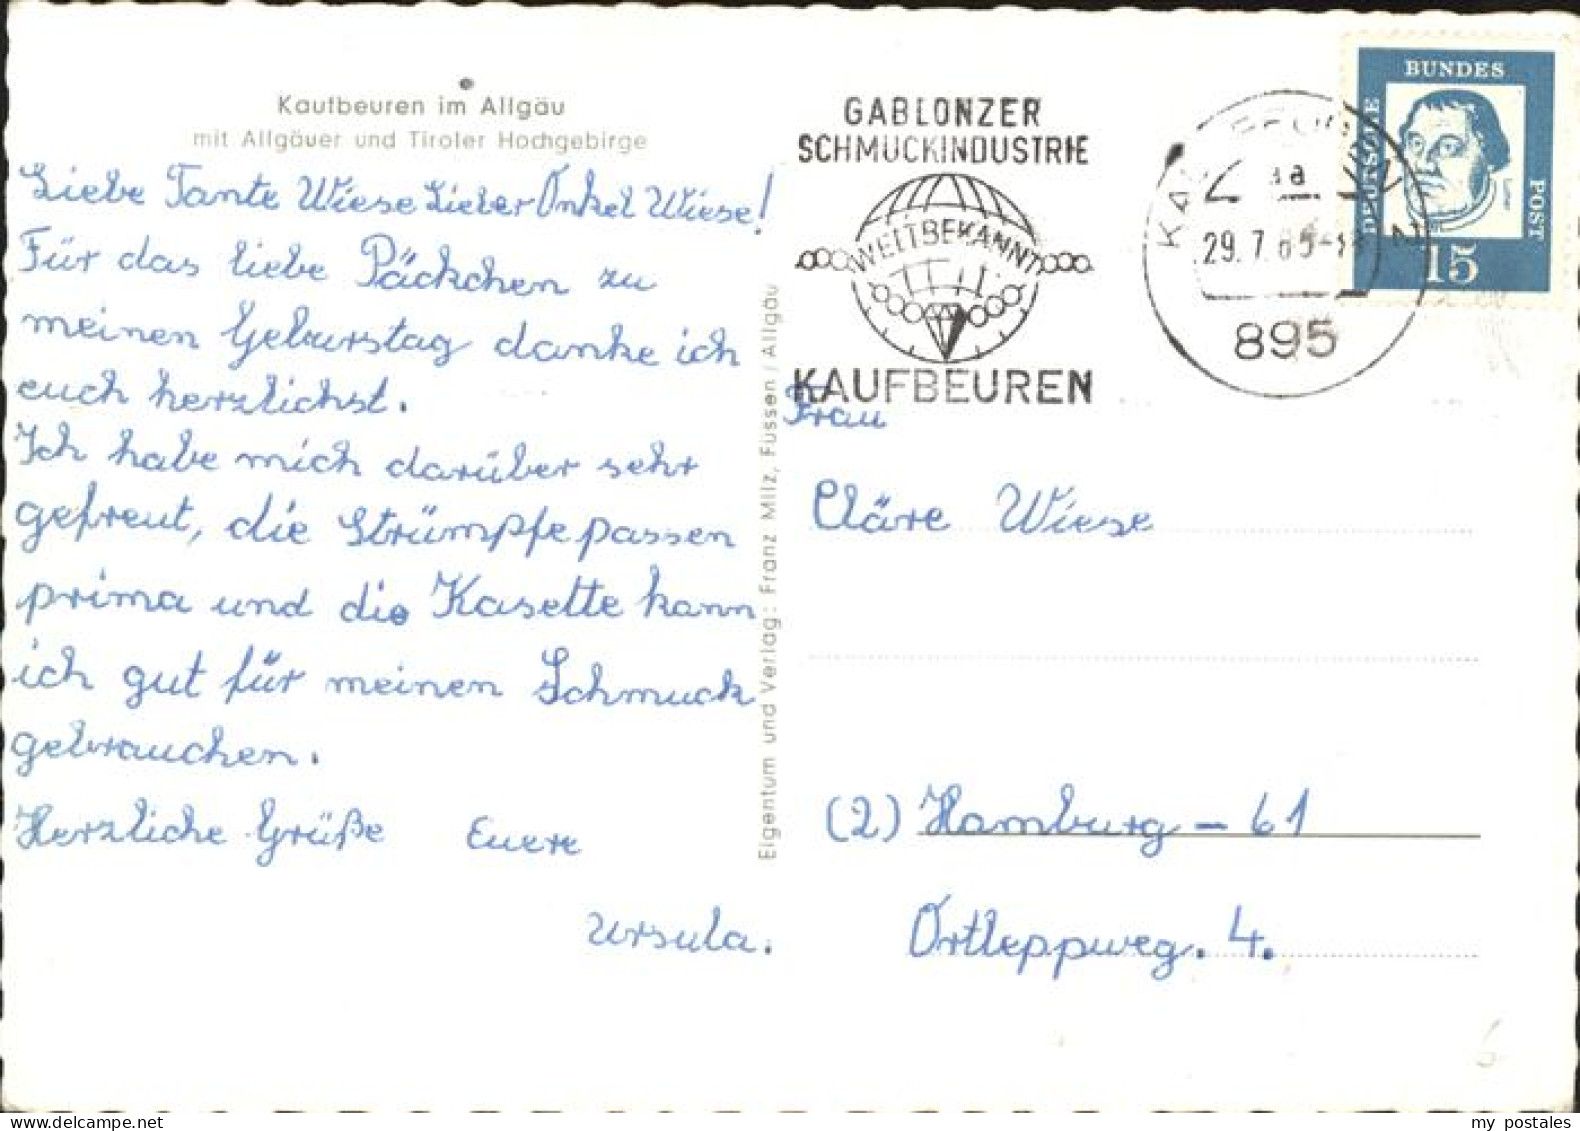 Kaufbeuren im Allgäu
mit Allgäuer und Tiroler Hochgebirge
Liebe Tante Wiese Lieber Onkel Wiese!
Für das liebe Päckchen zu
meinen Geburstag danke ich
euch herzlichst.
Ich habe mich darüber sehr
gefreut, die Strümpfe passen
prima und die Kasette kann
ich gut für meinen Schmuck
gebrauchen.
Herzliche Grüße Euere
Ursula.
Eigentum und Verlag: Franz Milz, Füssen / Allgäu
GABLONZER
SCHMUCKINDUSTRIE
WELTBEKANNT
KAUFBEUREN
29.7.65
895
DEUTSCHE
BUNDES
POST
Luther
15
Frau
Cläre Wiese
(2) Hamburg - 61
Ortleppweg. 4.
my postales